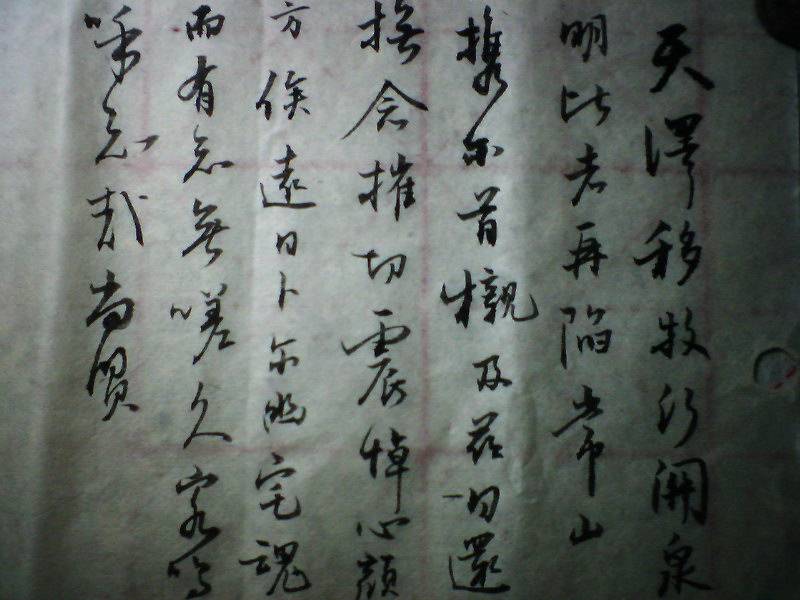 天澤移牧河關泉
明比者再陷常山
携尔首櫬及茲同還
撫念摧切震悼心顏
方俟遠日卜尔幽宅魂
而有知無嗟久客嗚
呼哀哉尚饗